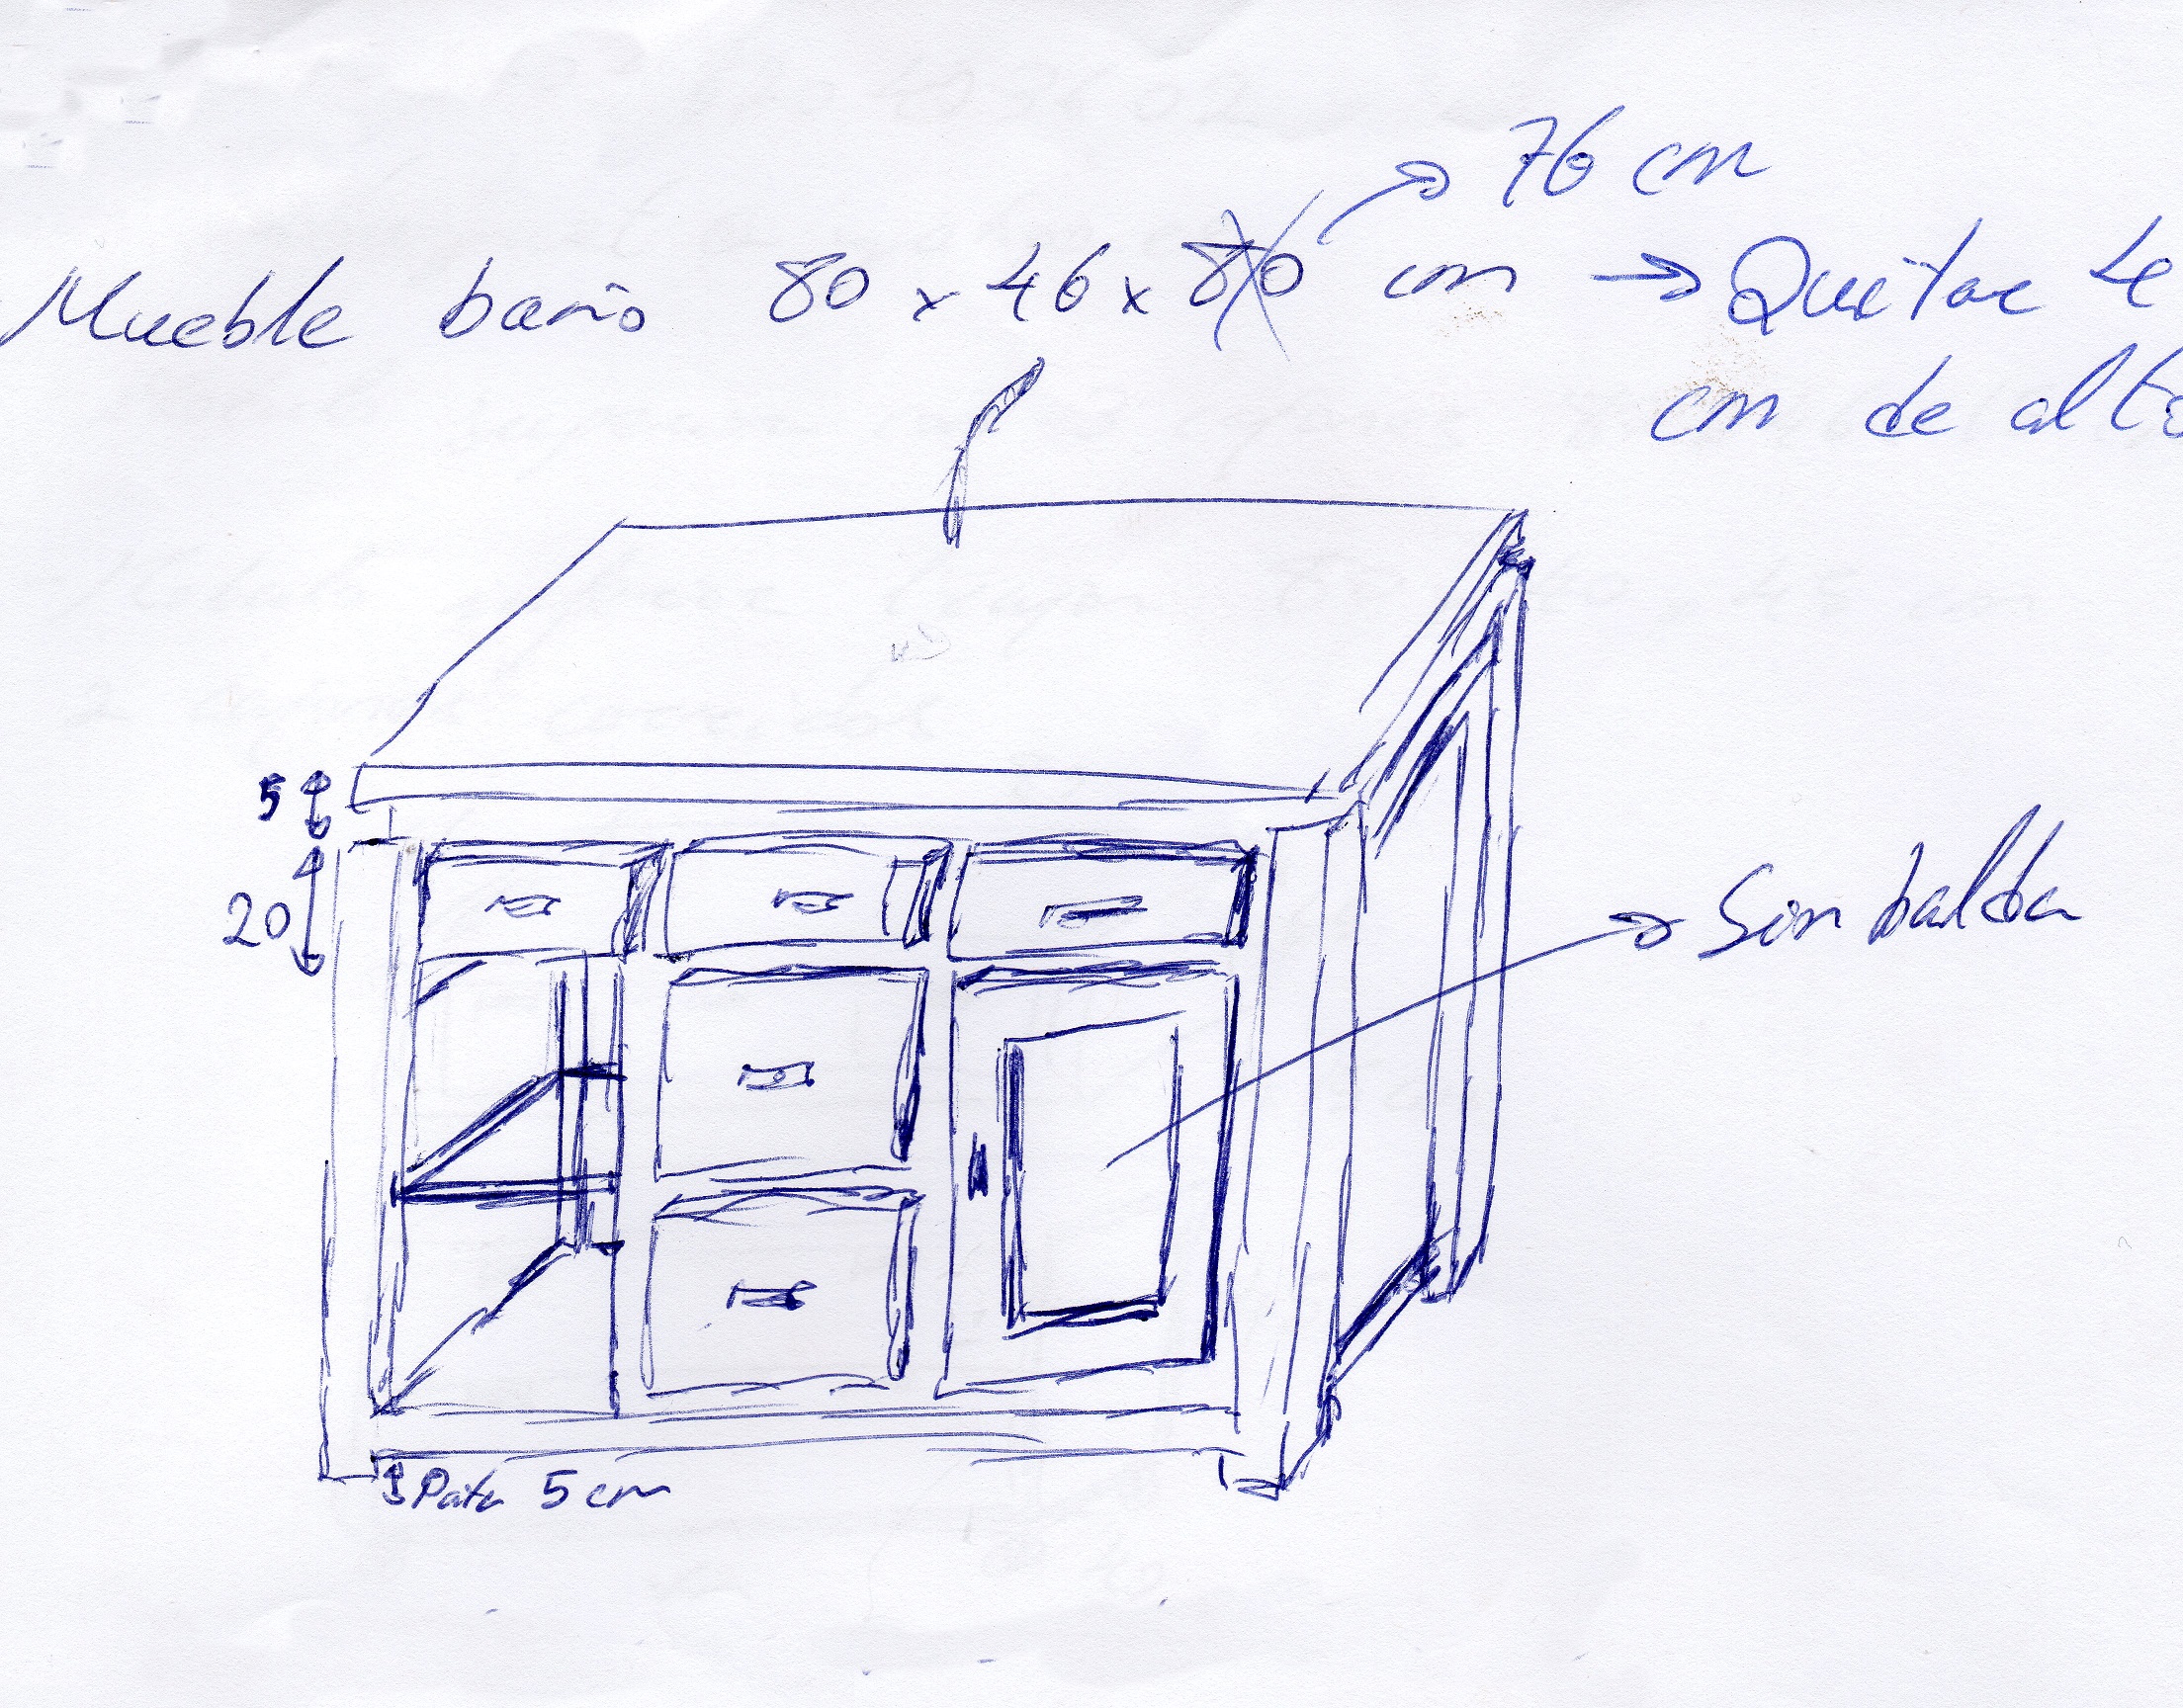 76 cm
Mueble baño 80 x 46 x 80 cm → Quitar 4
cm de alto
5
20
Sin balda
Pata 5 cm